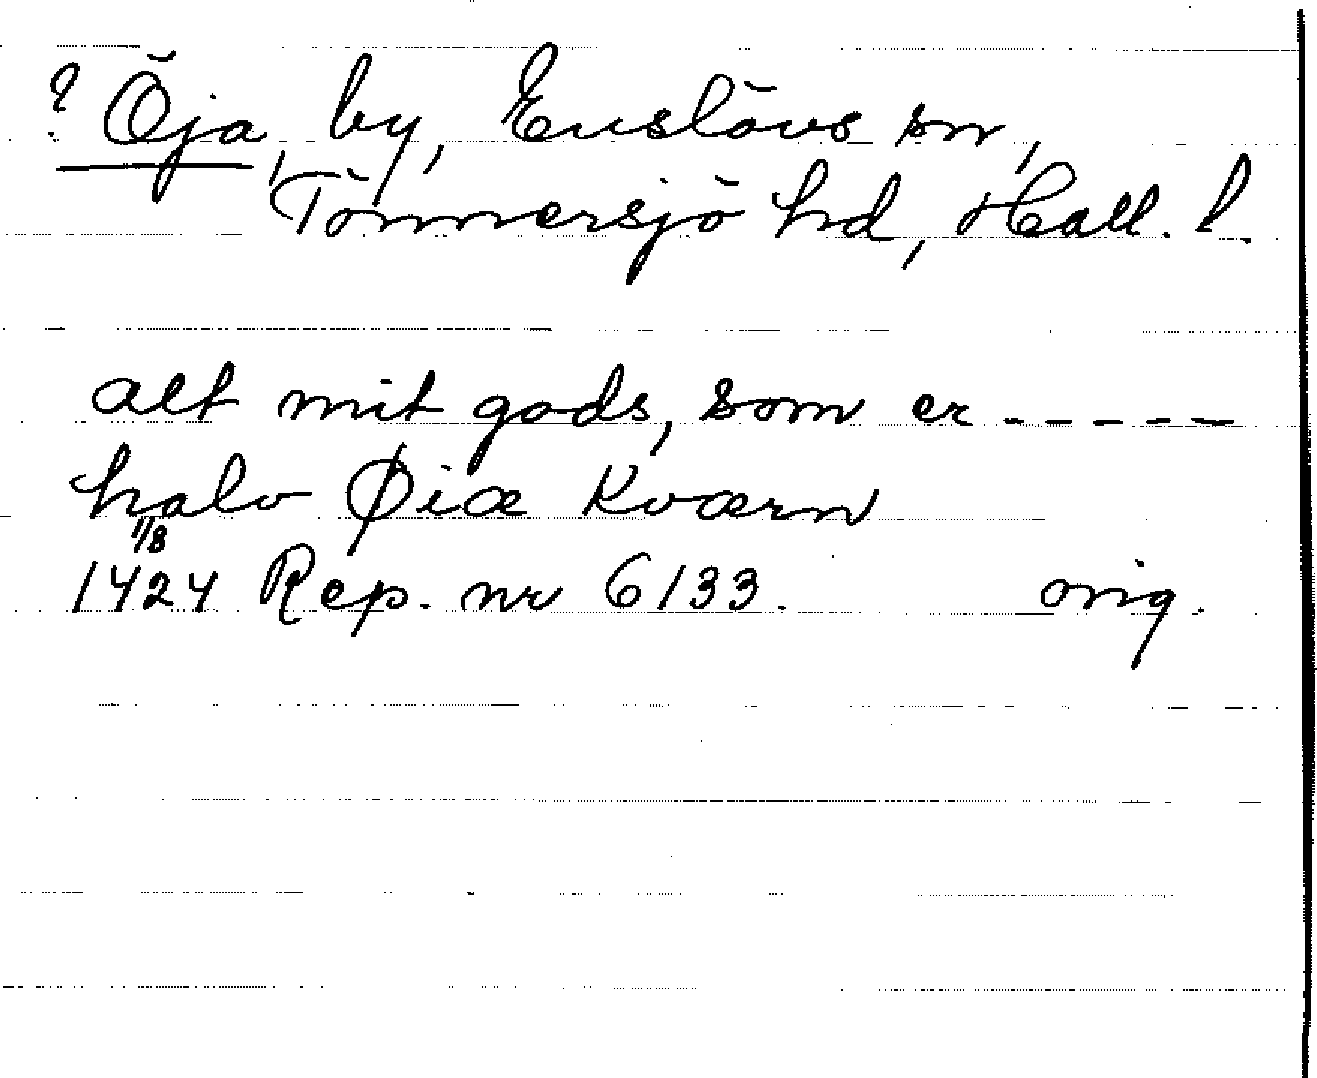 ? Öja, by, Enslövs sn,
Tönnersjö hd, Hall. l.
alt mit gods, som er -----
halv Øiæ Kværn
1/8
1424 Rep. nr 6133. orig.